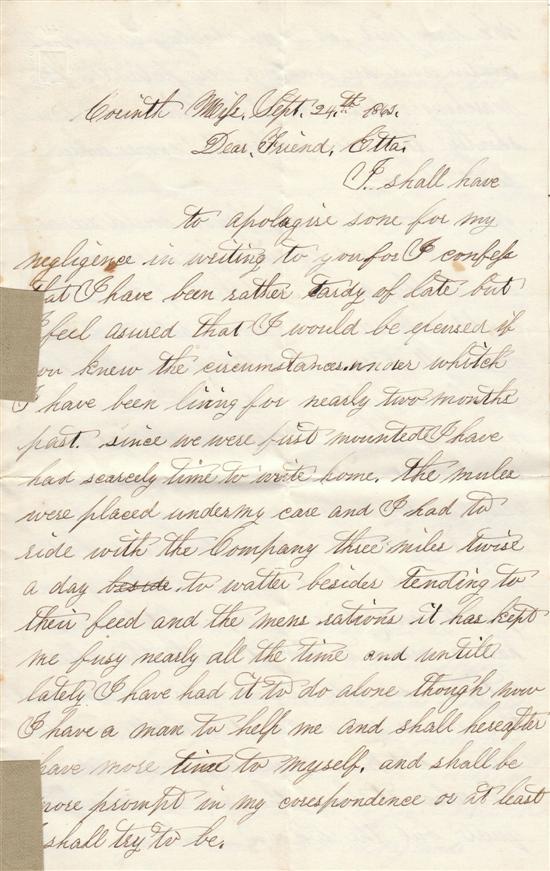 Corinth Miss. Sept. 24.th 1863.
Dear, Friend, Etta.
I shall have
to apologise sone for my
negligence in writing to you for I confess
that I have been rather tardy of late but
I feel asured that I would be excused if
you knew the circumstances under whitch
I have been living for nearly two months
past. since we were first mounted I have
had scarcely time to write home. the mules
were placed under my care and I had to
ride with the Company three miles twise
a day beside to watter besides tending to
their feed and the mens rations it has kept
me busy nearly all the time and untile
lately I have had it to do alone though now
I have a man to help me and shall hereafter
have more time to myself. and shall be
more prompt in my corespondence or at least
I shall try to be.